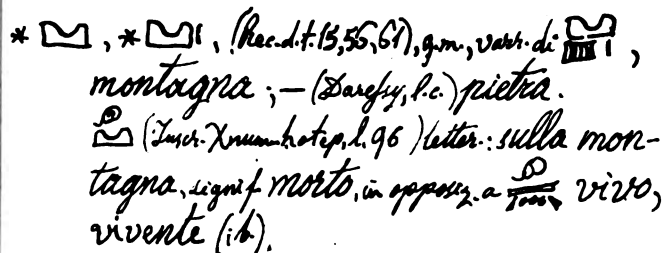 * 𓈋 , * 𓈋𓏤 , (Rec. d. t. 15, 56, 61), g. m., varr. di 𓏤 ,
montagna ; — (Daressy, l. c.) pietra.
(Inscr. Xnumhotep, l. 96) letter.: sulla mon-
tagna, signif. morto, in opposiz. a vivo,
vivente (ib).